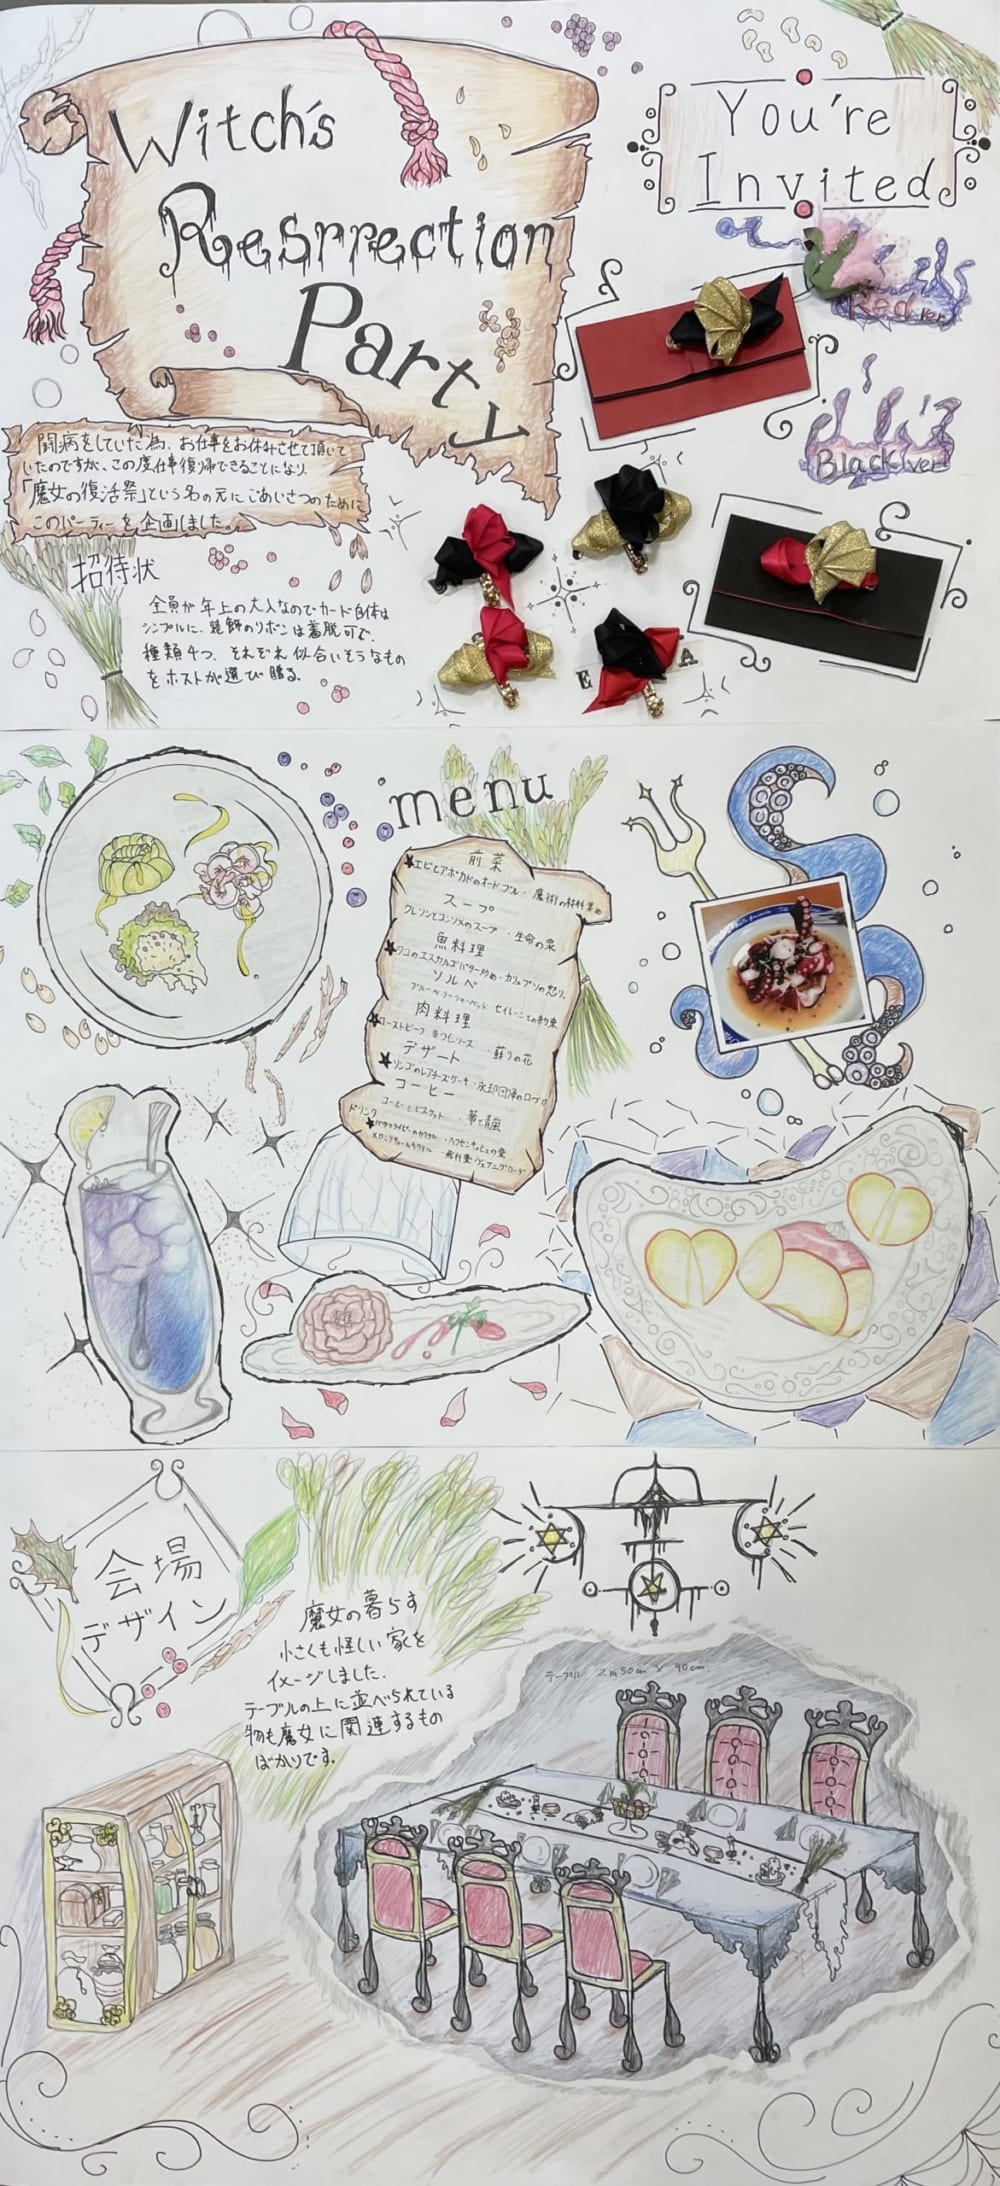 Witch's
Resrrection
Party
You're
Invited
Red ver
Black ver
闘病をしていた為、お仕事をお休みさせて頂いて
いたのですが、この度仕事復帰できることになり、
「魔女の復活祭」という名の元にごあいさつのために
このパーティーを企画しました。
招待状
全員が年上の大人なのでカード自体は
シンプルに、装飾のリボンは着脱可で、
種類4つ、それぞれ似合いそうなもの
をホストが選び贈る。
E A
menu
前菜
★エビとアボカドのオードブル・魔術の材料集め
スープ
クレソンとコンソメのスープ・生命の泉
魚料理
★タコのエスカルゴバター炒め・カリュプソの怒り
ソルベ
ブルーベリーシャーベット セイレーンとの約束
肉料理
★ローストビーフ 赤ワインソース・蘇りの花
デザート
★リンゴのレアチーズケーキ・永却回帰のロブロ
コーヒー
コーヒーとビスケット・箒と旋風
ドリンク
★バタフライピーのカクテル・
メロンリキュールカクテル・飛行薬
会場
デザイン
魔女の暮らす
小さくも怪しい家を
イメージしました。
テーブルの上に並べられている
物も魔女に関連するもの
ばかりです。
テーブル 2m50cm × 90cm